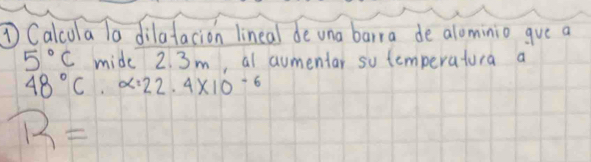 ① Calcula la dilatación lineal de una barra de aluminio que a
5°C mide 2.3m, al aumentar su temperatura a
48°C. α=22.4x10⁻⁶
R=